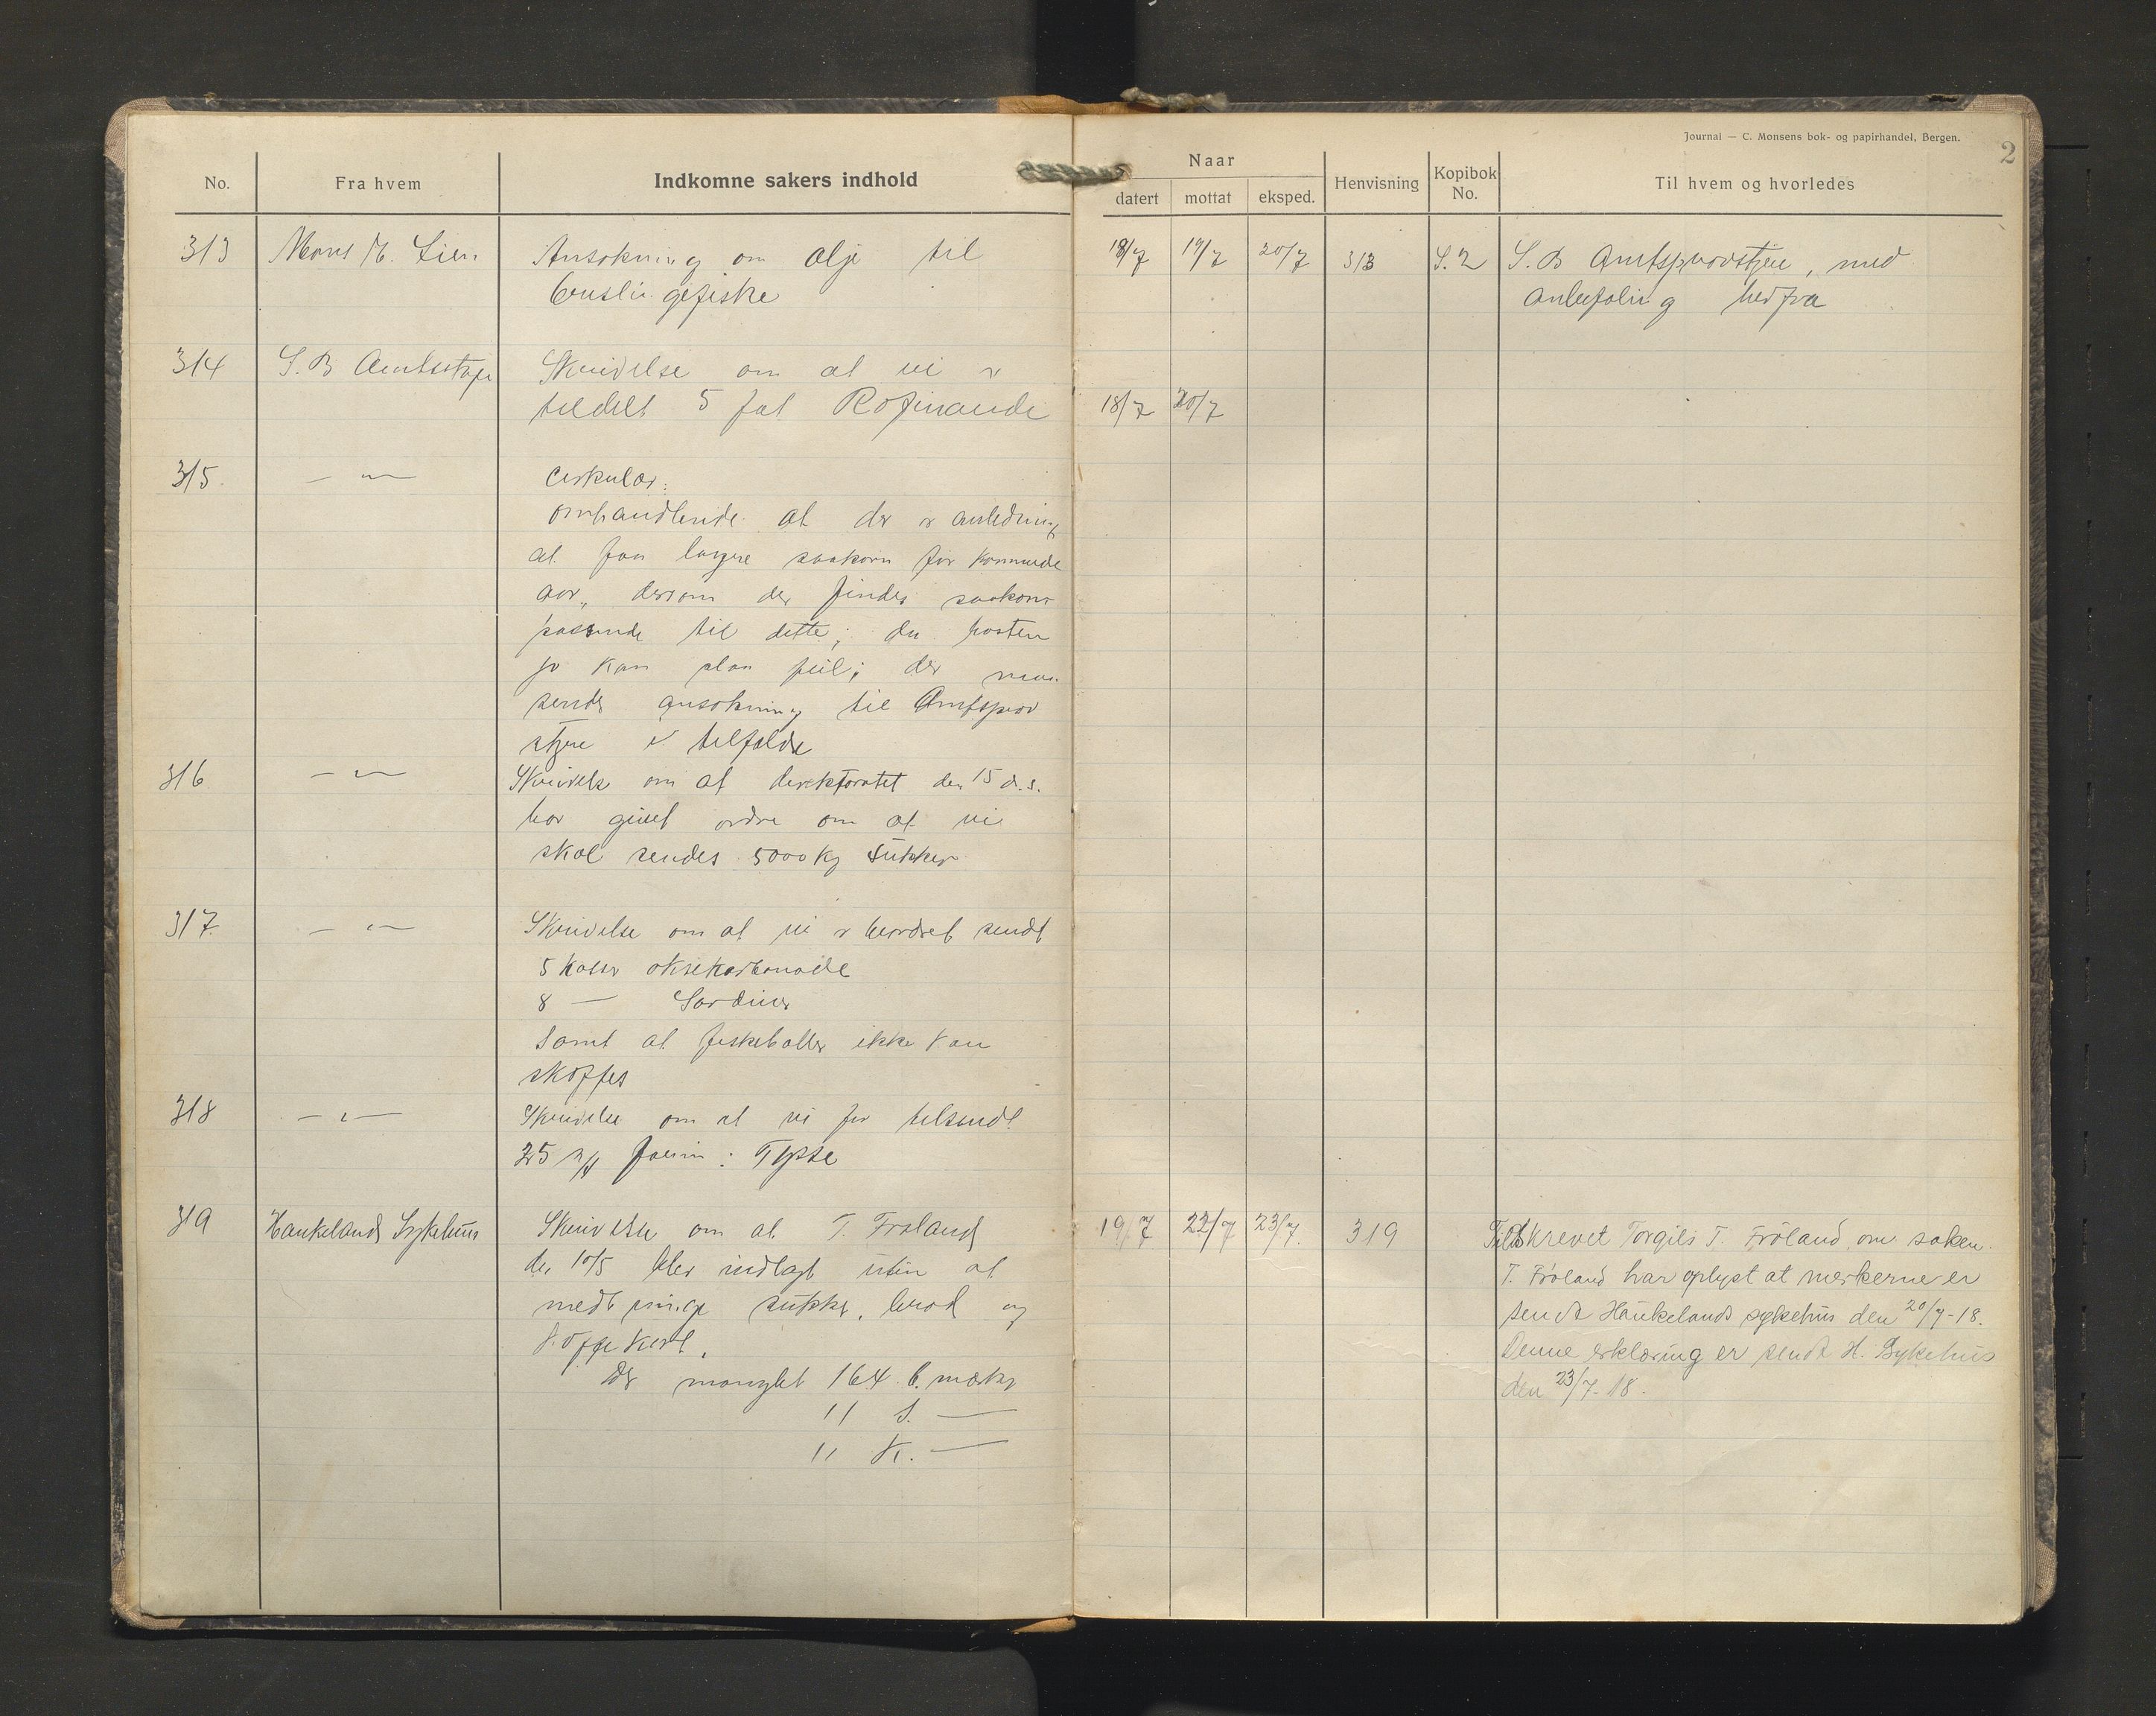 Journal — C. Monsens bok- og papirhandel, Bergen.
2
No.
Fra hvem
Indkomne sakers indhold
Naar
datert
mottat
eksped.
Henvisning
Kopibok No.
Til hvem og hvorledes
313 Mons M. Lien Ansøkning om olje til 18/7 19/7 20/7 313 S. 2 S. B Amtsprovstyre, med
brislingefiske anbefaling herfra
314 S. B Amtsstyre Skrivelse om at vi er
tildelt 5 fat Rafinade 18/7 20/7
315 — " — Cirkulær:
omhandlende at der er anledning
at faa lagre saakorn for kommende
aar, dersom der findes saakorn
passende til dette, da høsten
jo kan slaa feil; der maa
sendes ansøkning til Amtsprov
styre i tilfælde
316 — " — Skrivelse om at direktoratet den 15 d.s.
har givet ordre om at vi
skal sendes 5000 kg sukker
317 — " — Skrivelse om at vi er beordret sendt
5 kasser oksekarbonade
8 — Sardiner
samt at fiskeboller ikke kan
skaffes
318 — " — Skrivelse om at vi får tilsendt
25 Tysse
319 Haukelands Sykehus Skrivelse om at T. Frøland 19/7 22/7 23/7 319 Tilskrevet Torgils T. Frøland om saken.
den 10/5 blev indlagt uten at T. Frøland har oplyst at merkerne er
medbringe sukker, brød og sendt Haukelands sykehus den 20/7-18.
kaffekort. Denne erklæring er sendt H. Sykehus
Der manglet 164 b. mærker den 23/7-18.
11 S. —
11 K. —